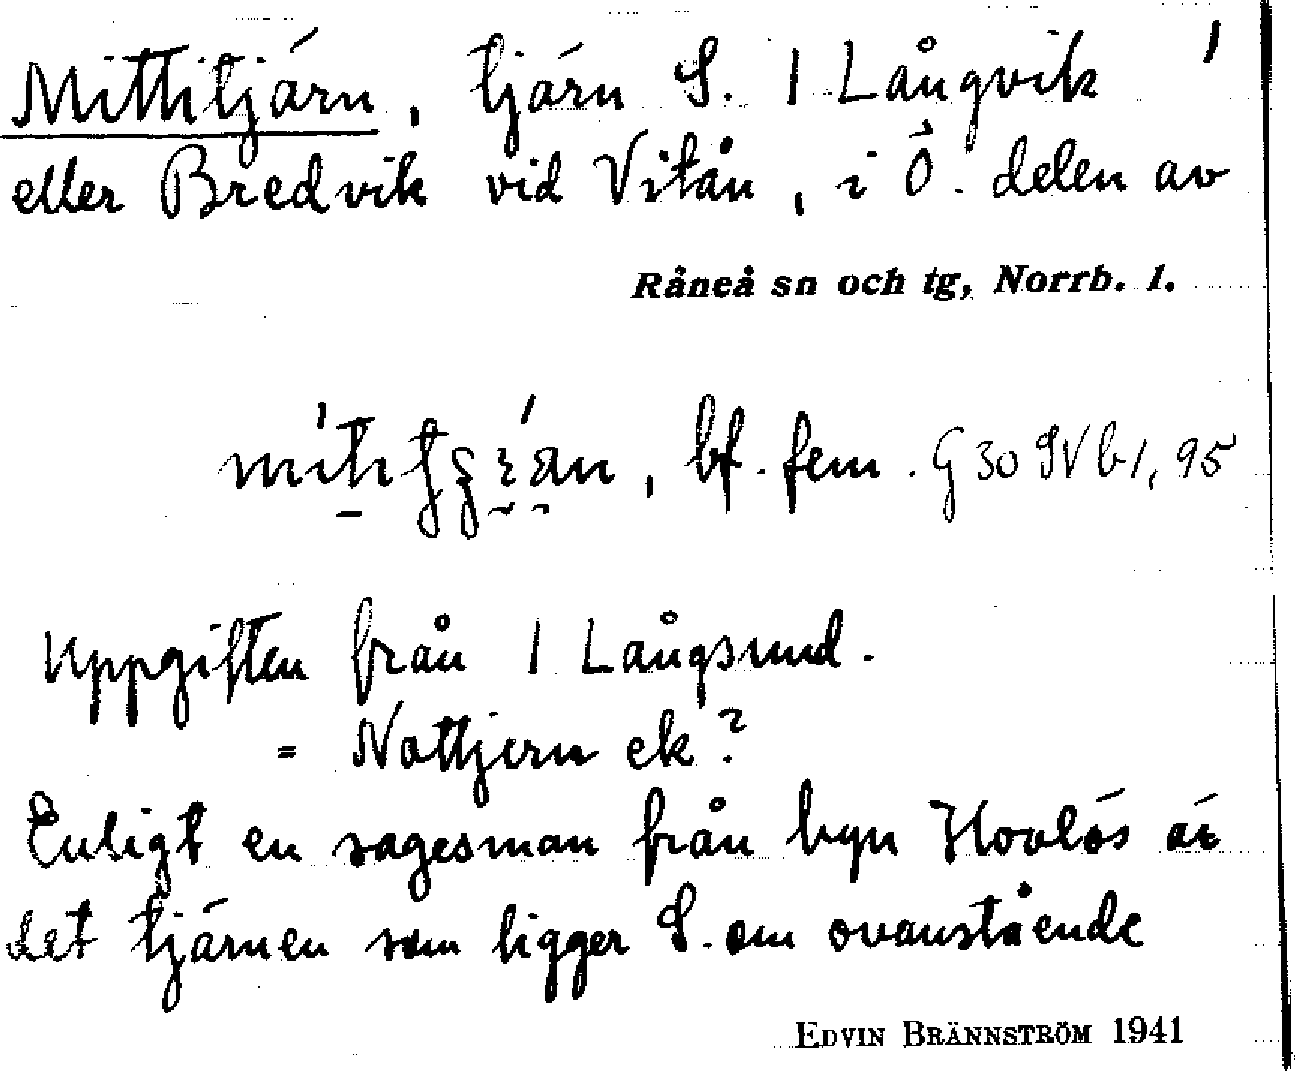 Mittitjärn, tjärn S. 1 Långvik
eller Bredvik vid Vitån, i Ö. delen av
Råneå sn och tg, Norrb. l.
bf. fem. G 30 IV b1, 95
Uppgiften från 1 Långsund.
= Nattjern ek?
Enligt en sagesman från byn Hovlös är
det tjärnen som ligger S. om ovanstående
EDVIN BRÄNNSTRÖM 1941